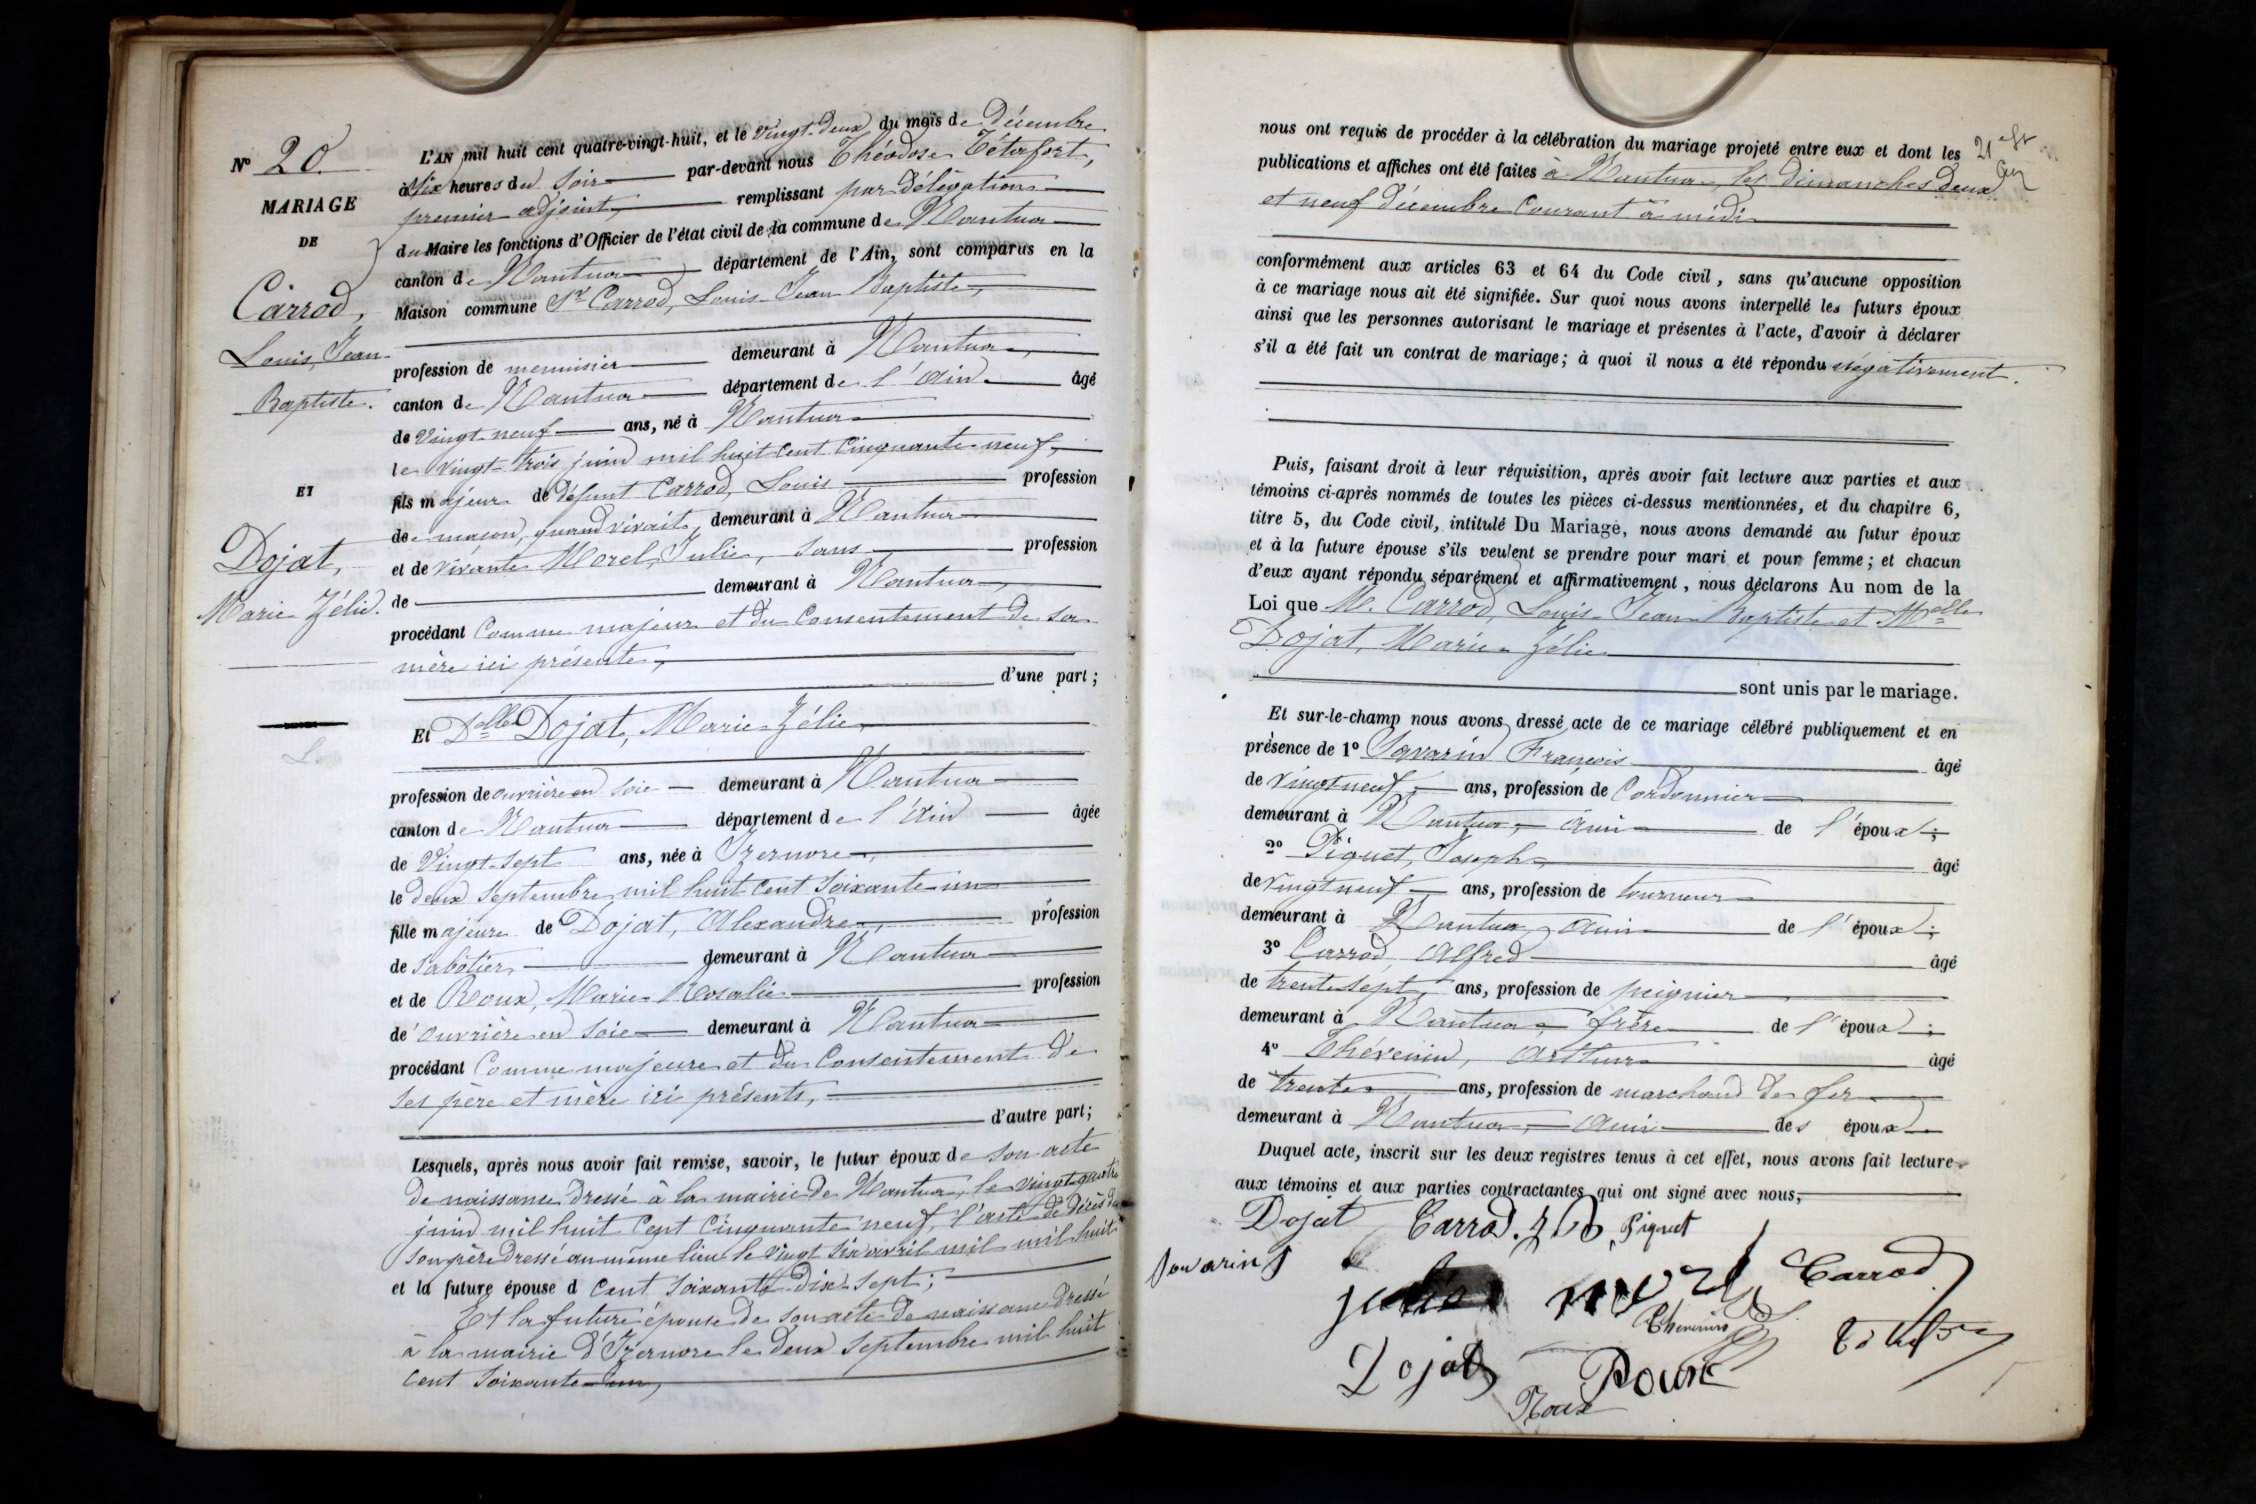 N° 20.
MARIAGE
DE
Carrod,
Louis, Jean-
Baptiste.
ET
Dojat,
Marie Zélie.
L'AN mil huit cent quatre-vingt-huit, et le vingt-deux du mois de décembre
à six heures du soir par-devant nous Théodose Tétafort,
premier adjoint, remplissant par délégation
du Maire les fonctions d'Officier de l'état civil de la commune de Nantua
canton de Nantua département de l'Ain, sont comparus en la
Maison commune Sr Carrod, Louis Jean Baptiste,
profession de menuisier demeurant à Nantua,
canton de Nantua département de l'Ain âgé
de vingt-neuf ans, né à Nantua
le vingt-trois juin mil huit cent cinquante-neuf,
fils majeur de défunt Carrod, Louis profession
de maçon, quand vivait, demeurant à Nantua
et de vivante Morel, Julie, sans profession
de demeurant à Nantua,
procédant comme majeur et du consentement de sa
mère ici présente,
d'une part;
Et Delle Dojat, Marie-Zélie,
profession de ouvrière en soie demeurant à Nantua
canton de Nantua département de l'Ain âgée
de vingt-sept ans, née à Izernore,
le deux septembre mil huit cent soixante-un
fille majeure de Dojat, Alexandre, profession
de sabotier demeurant à Nantua
et de Roux, Marie Rosalie profession
de ouvrière en soie demeurant à Nantua
procédant comme majeure et du consentement de
ses père et mère ici présents,
d'autre part;
Lesquels, après nous avoir fait remise, savoir, le futur époux de son acte
de naissance dressé à la mairie de Nantua, le vingt-quatre
juin mil huit cent cinquante neuf, l'acte de décès de
son père dressé au même lieu le vingt six avril mil mil huit
et la future épouse d cent soixante-dix-sept;
Et la future épouse de son acte de naissance dressé
à la mairie d'Izernore le deux septembre mil huit
cent soixante-un,
nous ont requis de procéder à la célébration du mariage projeté entre eux et dont les
publications et affiches ont été faites à Nantua, les dimanches deux
et neuf décembre courant à midi
conformément aux articles 63 et 64 du Code civil, sans qu'aucune opposition
à ce mariage nous ait été signifiée. Sur quoi nous avons interpellé les futurs époux
ainsi que les personnes autorisant le mariage et présentes à l'acte, d'avoir à déclarer
s'il a été fait un contrat de mariage; à quoi il nous a été répondu négativement.
Puis, faisant droit à leur réquisition, après avoir fait lecture aux parties et aux
témoins ci-après nommés de toutes les pièces ci-dessus mentionnées, et du chapitre 6,
titre 5, du Code civil, intitulé Du Mariage, nous avons demandé au futur époux
et à la future épouse s'ils veulent se prendre pour mari et pour femme; et chacun
d'eux ayant répondu séparément et affirmativement, nous déclarons Au nom de la
Loi que M. Carrod, Louis-Jean Baptiste et Melle
Dojat, Marie-Zélie
sont unis par le mariage.
Et sur-le-champ nous avons dressé acte de ce mariage célébré publiquement et en
présence de 1° Savarin François âgé
de vingt neuf ans, profession de cordonnier
demeurant à Nantua, ami de l'époux;
2° Piquet, Joseph, âgé
de vingt neuf ans, profession de tourneur
demeurant à Nantua, ami de l'époux;
3° Carrod, Alfred âgé
de trente sept ans, profession de peignier
demeurant à Nantua, frère de l'époux;
4° Thévenin, Arthur âgé
de trente ans, profession de marchand de fer
demeurant à Nantua, ami des époux
Duquel acte, inscrit sur les deux registres tenus à cet effet, nous avons fait lecture
aux témoins et aux parties contractantes qui ont signé avec nous,
Dojat Carrod Piquet
Savarin
morel Carrod
Thevenin
Dojat Roux
Roux